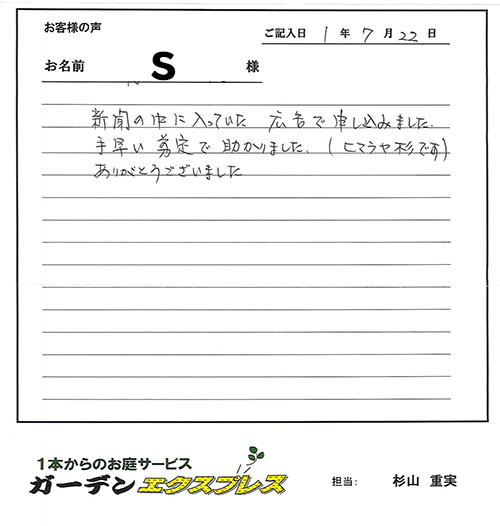 お客様の声
ご記入日 1 年 7 月 22 日
お名前 S 様
新聞の中に入っていた 広告で申し込みました.
手早い剪定で助かりました. (ヒマラヤ杉です)
ありがとうございました
1本からのお庭サービス
ガーデンエクスプレス
担当: 杉山 重実